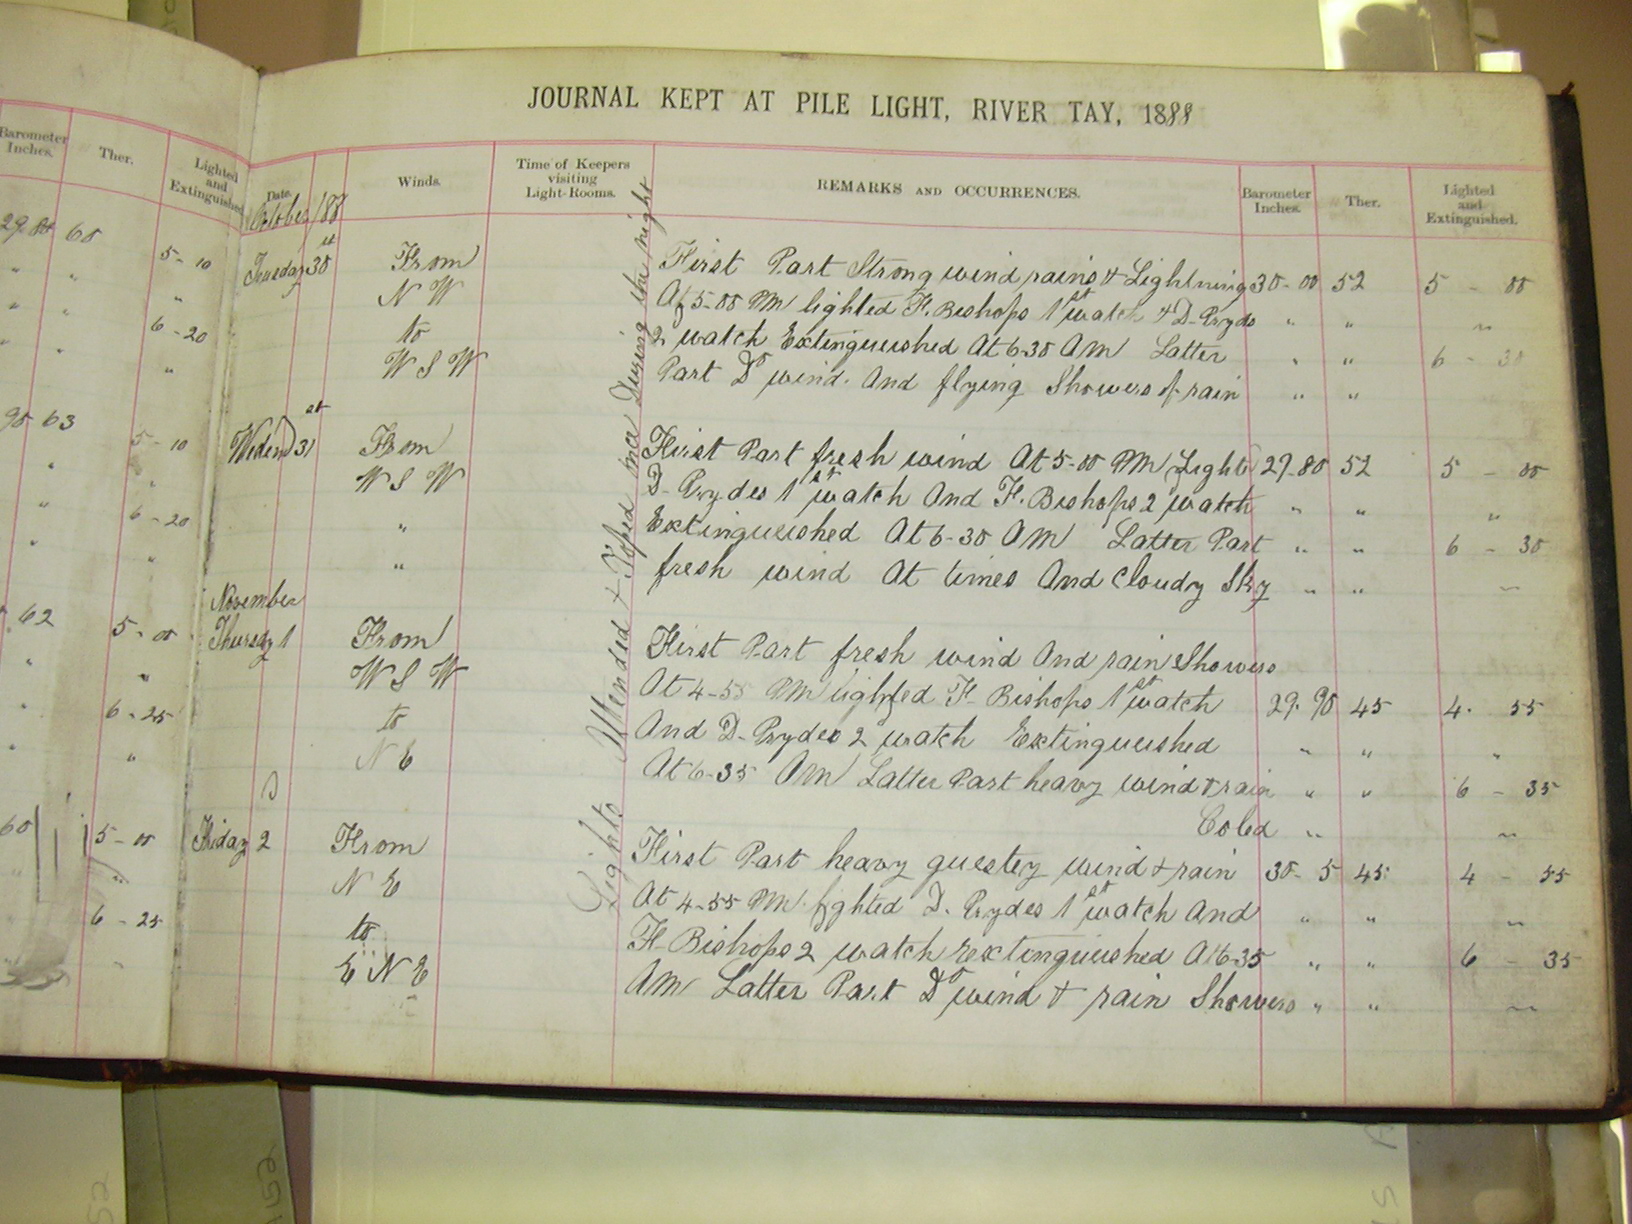 JOURNAL KEPT AT PILE LIGHT, RIVER TAY, 1888
Barometer Inches. Ther. Lighted and Extinguished
29.80 60 5-10
6-20
90 63 5-10
6-20
62 5-00
6-25
60 5-00
6-25
Date. Winds. Time of Keepers visiting Light-Rooms. REMARKS AND OCCURRENCES. Barometer Inches. Ther. Lighted and Extinguished.
October /88
Tuesday 30 From First Part Strong wind rains & Lightning 30-00 52 5 - 00
N W At 5-00 PM lighted H. Bishops 1st watch & D-Prydes " " "
to 2 watch Extinguished At 6-30 AM Latter " " 6 - 30
W S W Part Do wind. And flying Showers of rain " "
Wedend 31st From First Part fresh wind At 5-00 PM Light 29-80 52 5 - 00
W S W D-Prydes 1st watch And H. Bishops 2 watch " " "
" Extinguished At 6-30 AM Latter Part " " 6 - 30
" fresh wind At times And Cloudy Sky " " "
November
Thursday 1 From First Part fresh wind And rain Showers
W S W At 4-55 PM lighted H- Bishops 1st watch 29.90 45 4. 55
to And D-Prydes 2 watch Extinguished " " "
N E At 6-35 AM Latter Part heavy wind & rain " " 6 - 35
Coled " "
Friday 2 From First Part heavy guestey wind & rain 30-5 45 4 - 55
N E At 4-55 PM. lighted D. Prydes 1st watch And " " "
to H-Bishops 2 watch Extinguished At 6-35 " " 6 - 35
E N E AM Latter Part Do wind & rain Showers " " "
Lights Attended & Toped once During the night